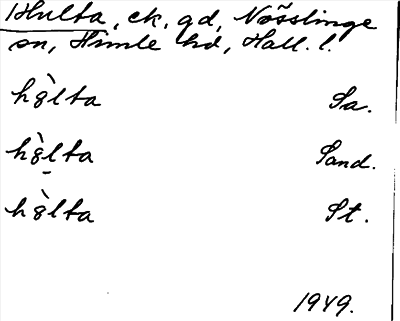 Hulta, ek. gd, Nösslinge
sn, Himle hd, Hall. l.
hə̀lta Sa.
hə̀lta Sand.
hə̀lta St.
1949.